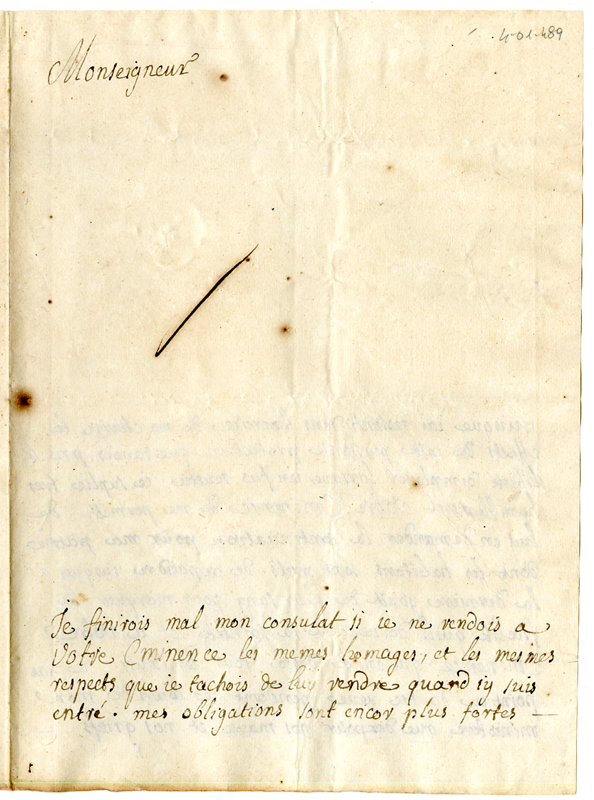 4-01-489
Monseigneur
Je finirois mal mon consulat si ie ne rendois a
Votre Eminence les memes homages, et les mesmes
respects que ie tachois de luy rendre quand i'y suis
entré. mes obligations sont encor plus fortes —